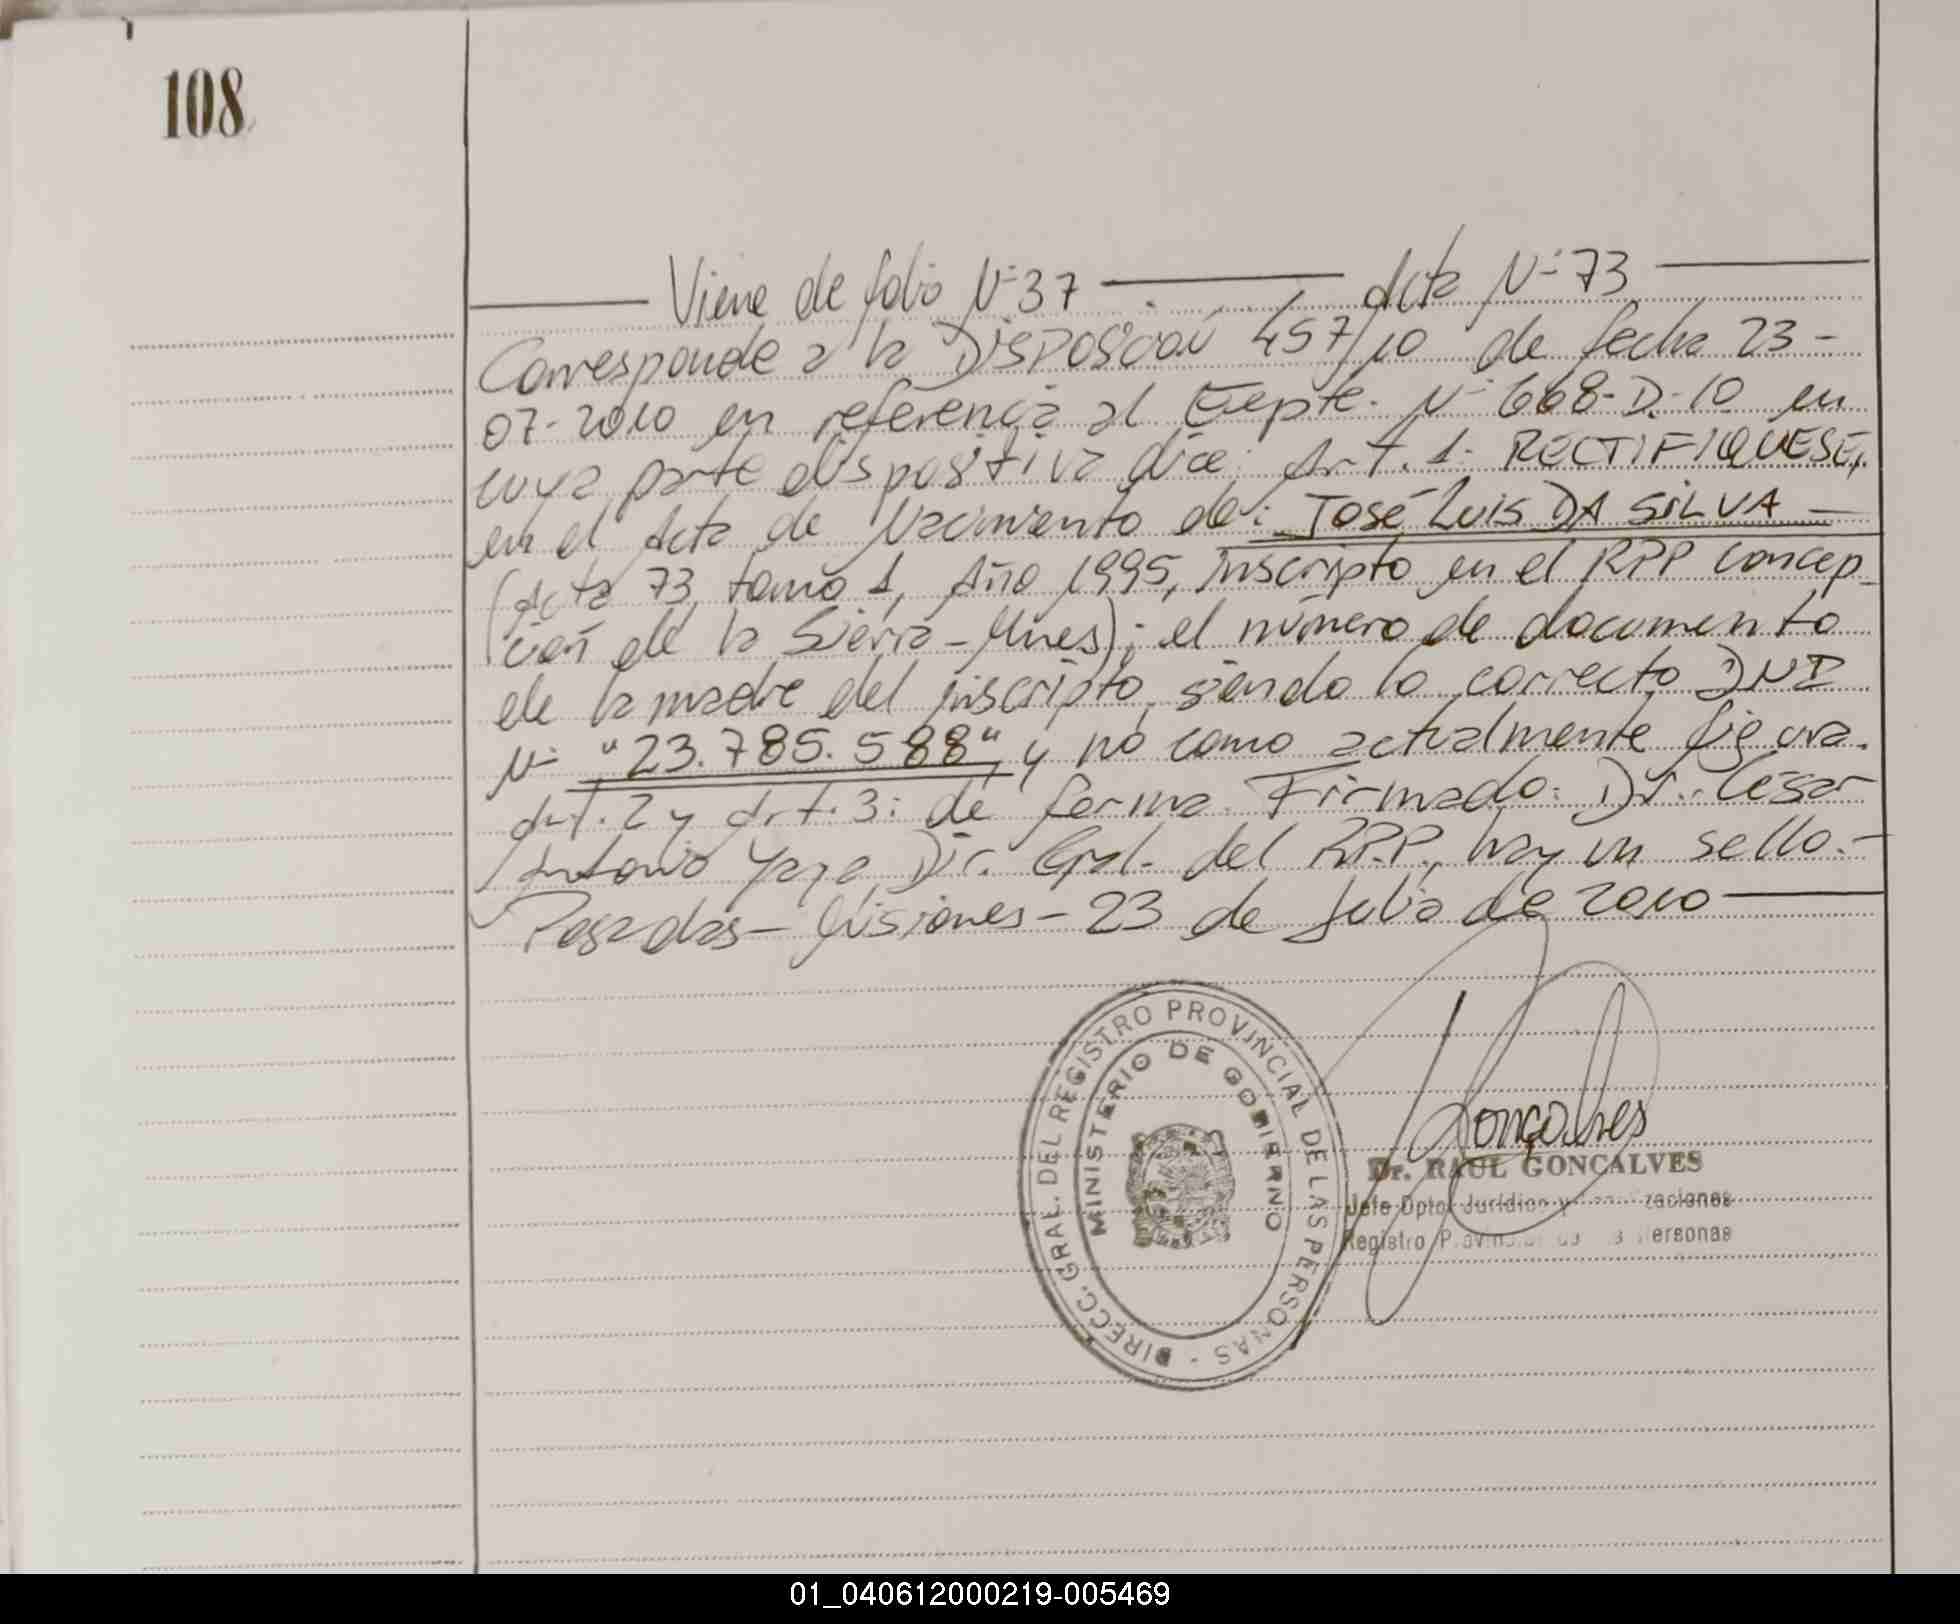 108
Viene de folio Nº 37 — Acta Nº 73 —
Corresponde a la DISPOSICIÓN 457/10 de fecha 23-
07-2010 en referencia al Expte. Nº 668-D.-10 en
cuya parte dispositiva dice: Art. 1: RECTIFIQUESE,
en el Acta de Nacimiento de: JOSÉ LUIS DA SILVA —
(Acta 73, tomo 1, Año 1995, inscripto en el RPP Concep
ción de la Sierra-Mnes); el número de documento
de la madre del inscripto, siendo lo correcto DNI
Nº "23.785.588", y no como actualmente figura.
Art. 2 y Art. 3: de forma. Firmado: Dr. César
Antonio Yaya, Dir. Gral. del R.P.P., hay un sello.-
Posadas- Misiones- 23 de Julio de 2010 —
DIRECC. GRAL. DEL REGISTRO PROVINCIAL DE LAS PERSONAS -
MINISTERIO DE GOBIERNO
Gonçalves
Dr. RAUL GONCALVES
Jefe Dpto. Jurídico y
Registro Provincial de las Personas
01_040612000219-005469